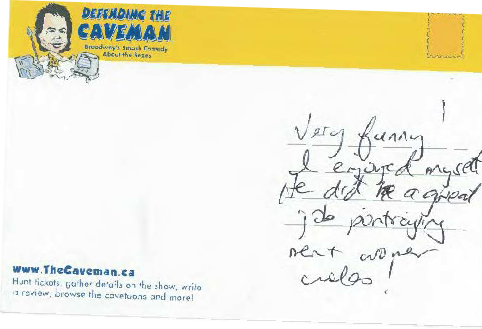 DEFENDING THE
CAVEMAN
Broadway's Smash Comedy
About the Sexes
Very funny !
I enjoyed myself
He did a great
job portraying
men + women
roles!
www.TheCaveman.ca
Hunt tickets, gather details on the show, write
a review, browse the cavetoons and more!